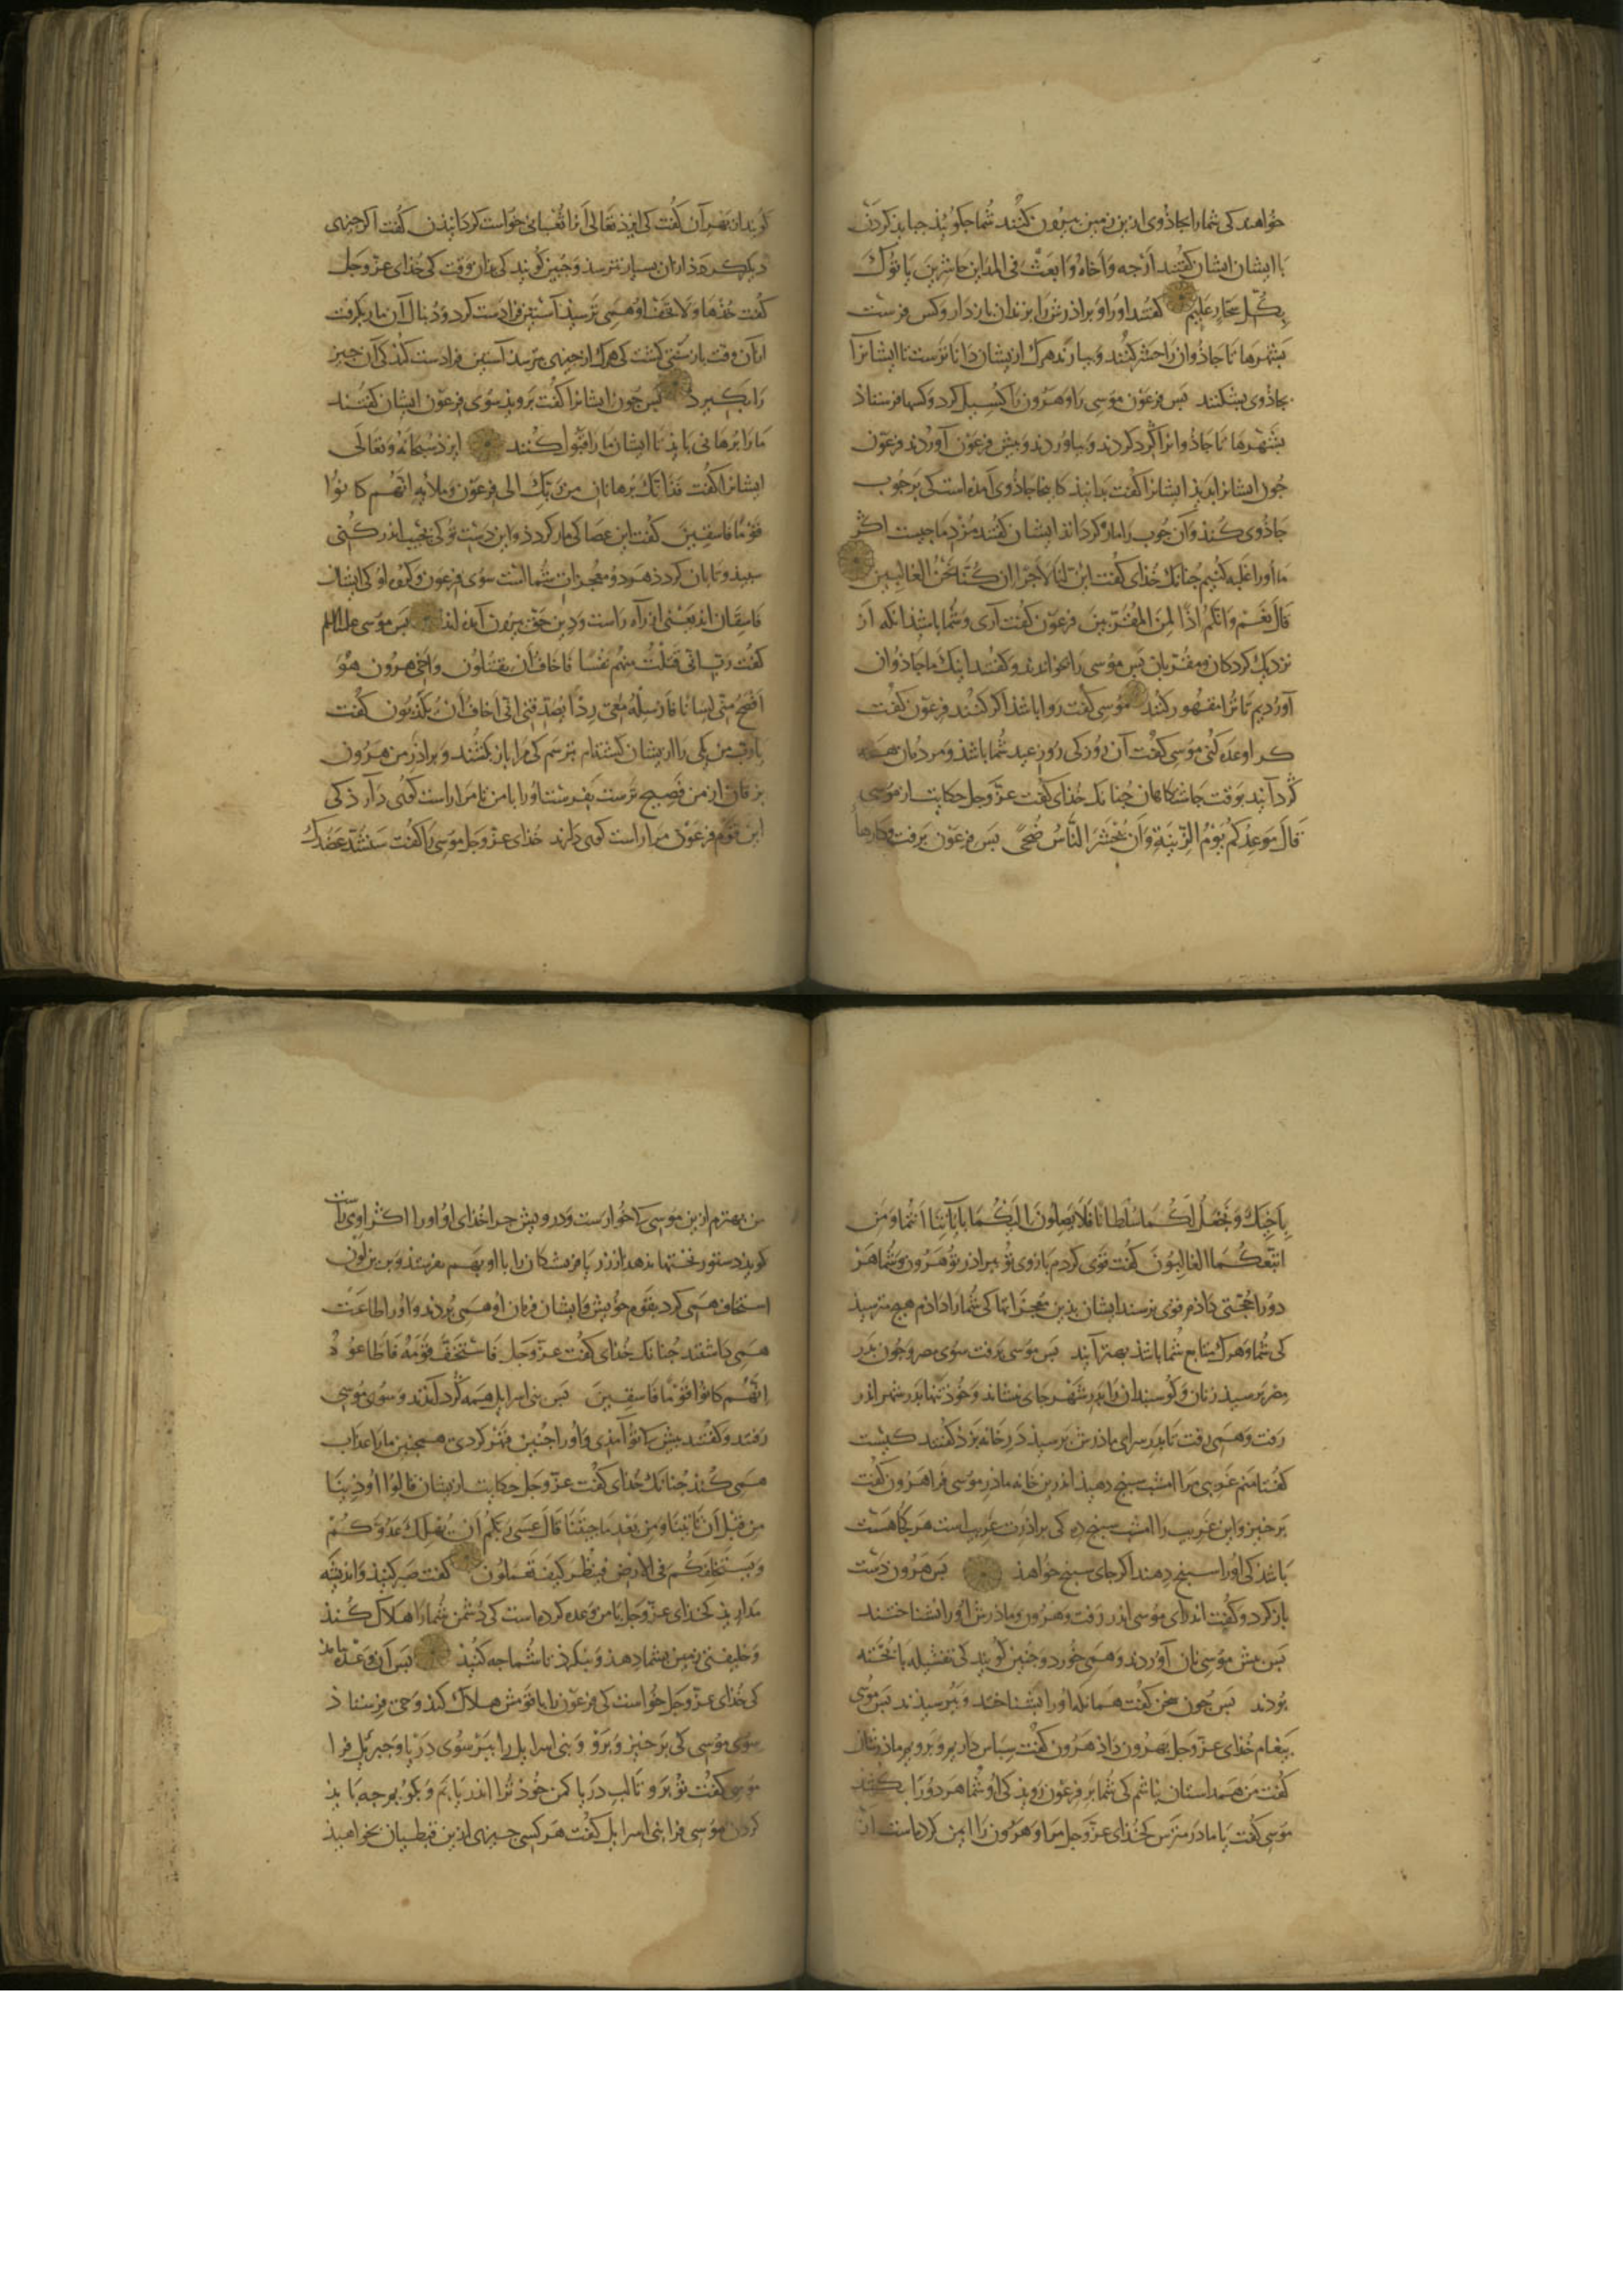 خواهند کی شما را بجاذوی ازین زمین بیرون کنند شما جکوییذ جباید کردن
با ایشان ایشان کفتند ارجه واخاه وابعث فی المداین حاشرین یاتوک
بکل سحار علیم کفتند او را و براذرش را بزندان باز دار و کس فرست
بشهرها تا جاذوان را حشر کنند و بیارند هرک ازیشان داناترست تا ایشانرا
بجاذوی بشکنند بس فرعون موسی را و هرون را کسیل کرد و کسها فرستاذ
بشهرها تا جاذوانرا کرد کردند و بیاوردند و بیش فرعون آوردند فرعون
جون ایشانرا بدید ایشانرا کفت بدانیذ کاینجا جاذوی آمده است کی بر جوب
جاذوی کند و آن جوب را مار کرداند ایشان کفتند مزد ما جیست اکر
ما او را غلبه کنیم جنانک خدای کفت ائن لنا لاجرا ان کنا نحن الغالبین
قال نعم وانکم اذا لمن المقربین فرعون کفت آری و شما باشیذ انکه از
نزدیک کردکان و مقربان بس موسی را بخواندند و کفتند اینک ما جاذوان
آوردیم تا ترا مقهور کنند موسی کفت روا باشذ اکر کنند فرعون کفت
کرا وعده کنی موسی کفت آن روز کی روز عید شما باشذ و مردمان همه
کرد آیند بوقت جاشتکاهان جنانک خدای کفت عز وجل حکایت از موسی
قال موعدکم یوم الزینة وان یحشر الناس ضحی بس فرعون برفت و کارها
کویند از بهر آن کفت کی ایزد تعالی آنرا ثعبانی خواست کردانیذن کفت اکر جیزی
کفت خذها ولا تخف او همی ترسیذ آستین فرا دست کرد و دنبال آن مار بکرفت
از آن وقت باز سنتی کشت کی هرک از جیزی بترسد آستین فرا دست کند کی آن جیز
را بکیرد بس جون ایشانرا کفت برویذ سوی فرعون ایشان کفتند
ما را برهانی بایذ تا ایشان ما را قبول کنند ایزذ سبحانه وتعالی
ایشانرا کفت فذانک برهانان من ربک الی فرعون وملائه انهم کانوا
قوما فاسقین کفت این عصا کی مار کردد و این دست تو کی بجیب اندر کنی
سبید و تابان کردد هر دو معجزات شما است سوی فرعون و کروه او کی ایشان
فاسقان اند یعنی از راه راست و دین حق بیرون آمده اند بس موسی علیه السلم
کفت رب انی قتلت منهم نفسا فاخاف ان یقتلون واخی هرون هو
افصح منی لسانا فارسله معی ردا یصدقنی انی اخاف ان یکذبون کفت
یا رب من یکی را ازیشان کشته‌ام بترسم کی مرا باز کشند و براذر من هرون
بزفان از من فصیح ترست بفرست او را با من تا مرا راست کوی دارذ کی
این قوم فرعون مرا راست کوی دارند خدای عز وجل موسی را کفت سنشد عضدک
باخیک ونجعل لکما سلطانا فلا یصلون الیکما بایاتنا انتما ومن
اتبعکما الغالبون کفت قوی کردم بازوی تو ببراذر تو هرون و شما هر
دو را حجتی داذم قوی نرسند ایشان بدین معجزاتها کی شما را داذم هیج مترسیذ
کی شما و هرک متابع شما باشذ بهتر آیند بس موسی برفت سوی مصر و جون بدر
مصر برسید زنان و کوسبندان را بدر شهر جای بنشاند و خوذ تنها بدر شهر اندر
رفت و همی رفت تا بدر سرای ماذرش برسیذ در خانه بزد کفتند کیست
کفتا منم غریبی مرا امشب سبنج دهید اندرین خانه ماذر موسی فرا هرون کفت
برخیز و این غریب را امشب سبنج ده کی براذرت غریب است هر کجا هست
باشد کی او را سبنج دهند اکر جای سبنج خواهذ بس هرون دست
باز کرد و کفت اندر آی موسی اندر رفت و هرون و ماذرش او را نشناختند
بس بیش موسی نان آوردند و همی خورد و جنین کویند کی تفشیله با بخته
بوذند بس جون سخن کفت همانکه او را بشناختند و ببرسیدند بس موسی
بیغام خدای عز وجل بهرون داذ هرون کفت سباس دارم
کفت من همداستان نباشم کی شما بر فرعون رویذ کی او شما هر دو را بکشد
موسی کفت یا مادر مترس کخدای عز وجل مرا و هرون را ایمن کرده است از
من بهترم ازین موسی کی خوارست و درویش جرا خدای او او را اکر او می راست
استخاف همی کرد بقوم خویش و ایشان فرمان او همی بردند و او را طاعت
همی داشتند جنانک خدای کفت عز وجل فاستخف قومه فاطاعوه
انهم کانوا قوما فاسقین بس بنی اسرایل همه کرد آمدند و سوی موسی
رفتند و کفتند بیش ما تو آمذی و او را جنین قهر کردی همجنین ما را عذاب
همی کند جنانک خدای کفت عز وجل حکایت ازیشان قالوا اوذینا
من قبل ان تاتینا ومن بعد ما جئتنا قال عسی ربکم ان یهلک عدوکم
ویستخلفکم فی الارض فینظر کیف تعملون کفت صبر کنیذ و اندیشه
مداریذ کخدای عز وجل با من وعده کرده است کی دشمن شما را هلاک کند
و خلیفتی زمین بشما دهد و بنکرد تا شما جه کنید بس آن وعده بامذ
کی خدای عز وجل خواست کی فرعون را با قومش هلاک کند وحی فرستاذ
سوی موسی کی برخیز و برو و بنی اسرایل را ببر سوی دریا و جبریل فرا
موسی کفت تو برو تا لب دریا کمن خوذ ترا اندر یابم و بکویم جه بایذ
کردن موسی فرا بنی اسرایل کفت هر کسی جیزی ازین قبطیان بخواهید